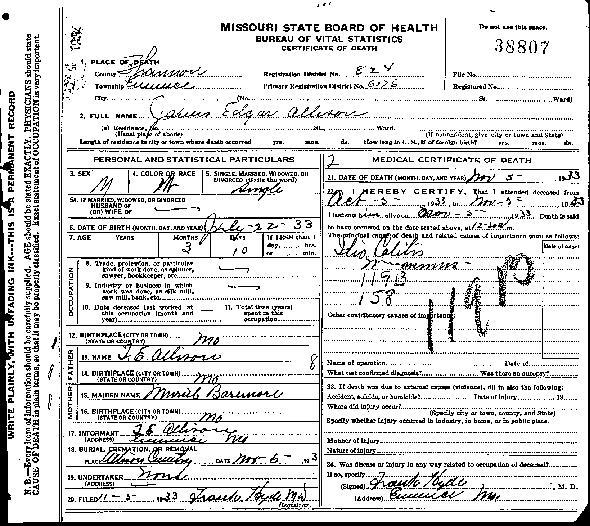 MISSOURI STATE BOARD OF HEALTH
BUREAU OF VITAL STATISTICS
CERTIFICATE OF DEATH
Do not use this space.
38807
1. PLACE OF DEATH
County Shannon Registration District No. 824 File No.
Township Eminence Primary Registration District No. Registered No.
City (No. St. Ward)
2. FULL NAME Edgar Allison
(a) Residence, No. St. Ward.
(Usual place of abode) (If nonresident, give city or town and State)
Length of residence in city or town where death occurred yrs. mos. ds. How long in U. S., if of foreign birth? yrs. mos. ds.
PERSONAL AND STATISTICAL PARTICULARS
3. SEX M
4. COLOR OR RACE W
5. SINGLE, MARRIED, WIDOWED, OR DIVORCED (write the word) Single
5A. IF MARRIED, WIDOWED, OR DIVORCED
HUSBAND OF
(OR) WIFE OF
6. DATE OF BIRTH (MONTH, DAY, AND YEAR) July-22-33
7. AGE YEARS MONTHS 3 DAYS 10 If LESS than 1 day, hrs. or min.
OCCUPATION
8. Trade, profession, or particular kind of work done, as spinner, sawyer, bookkeeper, etc.
9. Industry or business in which work was done, as silk mill, saw mill, bank, etc.
10. Date deceased last worked at this occupation (month and year)
11. Total time (years) spent in this occupation
12. BIRTHPLACE (CITY OR TOWN)
(STATE OR COUNTRY) Mo
FATHER
13. NAME T. E. Allison
8
14. BIRTHPLACE (CITY OR TOWN)
(STATE OR COUNTRY) Mo
MOTHER
15. MAIDEN NAME
16. BIRTHPLACE (CITY OR TOWN)
(STATE OR COUNTRY) Mo
17. INFORMANT T. E. Allison
(ADDRESS) Eminence Mo
18. BURIAL, CREMATION, OR REMOVAL
PLACE DATE Nov. 6- 3
19. UNDERTAKER None
(ADDRESS)
20. FILED 11-5-1933 Frank Hyde MD
Registrar.
2
MEDICAL CERTIFICATE OF DEATH
21. DATE OF DEATH (MONTH, DAY, AND YEAR) Nov 5- 1933
22. I HEREBY CERTIFY, That I attended deceased from
Oct-5- 1933, to Nov-5- 1933
I last saw alive on Nov-5- 1933 Death is said
to have occurred on the date stated above, at m.
The principal cause of death and related causes of importance were as follows:
Date of onset
Ileo Colitis
158
119 B
Other contributory causes of importance:
Name of operation Date of
What test confirmed diagnosis? Was there an autopsy?
23. If death was due to external causes (violence), fill in also the following:
Accident, suicide, or homicide? Date of injury 19
Where did injury occur?
(Specify city or town, county, and State)
Specify whether injury occurred in industry, in home, or in public place.
Manner of injury
Nature of injury
24. Was disease or injury in any way related to occupation of deceased?
If so, specify
(Signed) Frank Hyde, M. D.
(Address) Eminence Mo.
WRITE PLAINLY, WITH UNFADING INK—THIS IS A PERMANENT RECORD
N. B.—Every item of information should be carefully supplied. AGE should be stated EXACTLY. PHYSICIANS should state
CAUSE OF DEATH in plain terms, so that it may be properly classified. Exact statement of OCCUPATION is very important.